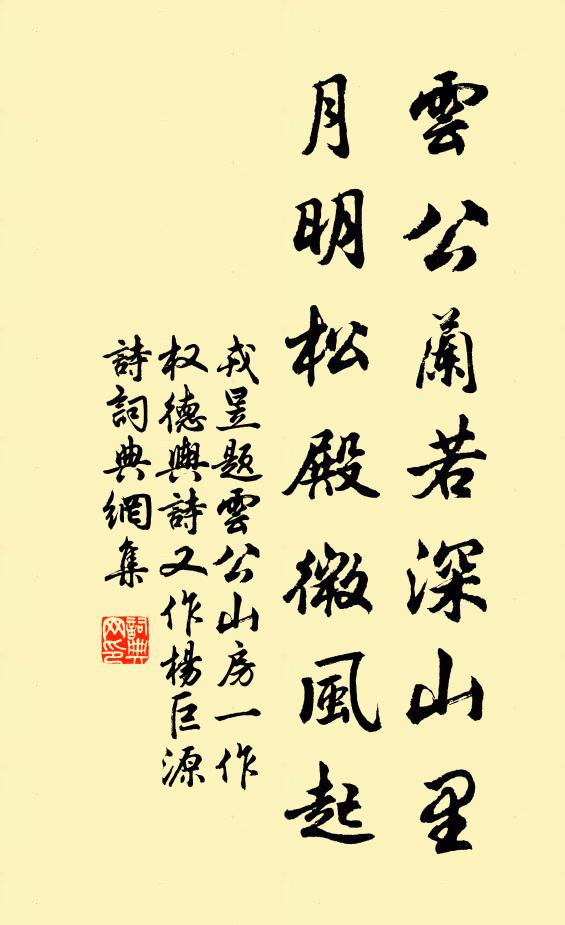 雲公蘭若深山里
月明松殿微風起
戎昱題雲公山房一作
权德輿詩又作楊巨源
詩詞典網集
詞典
网印